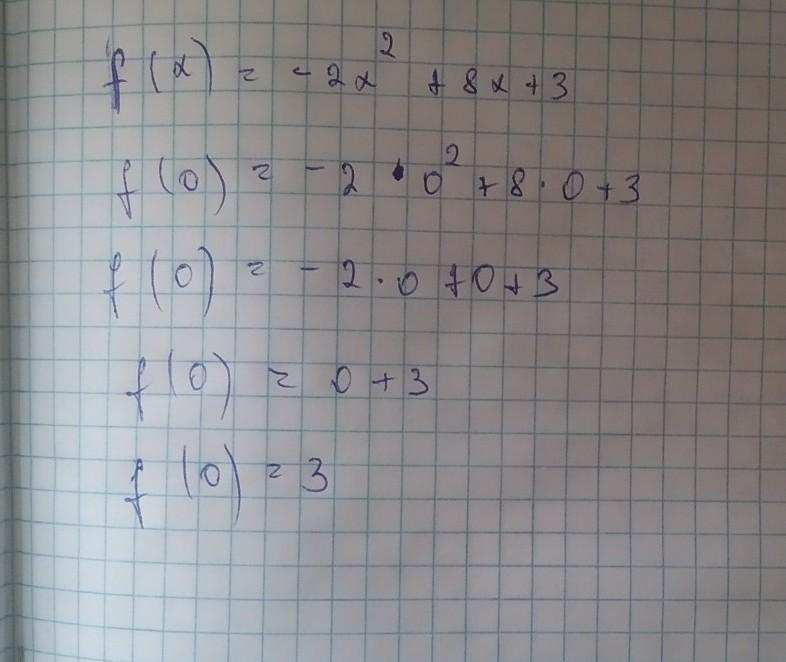 f(x) = -2x² + 8x + 3
f(0) = -2 · 0² + 8 · 0 + 3
f(0) = -2 · 0 + 0 + 3
f(0) = 0 + 3
f(0) = 3